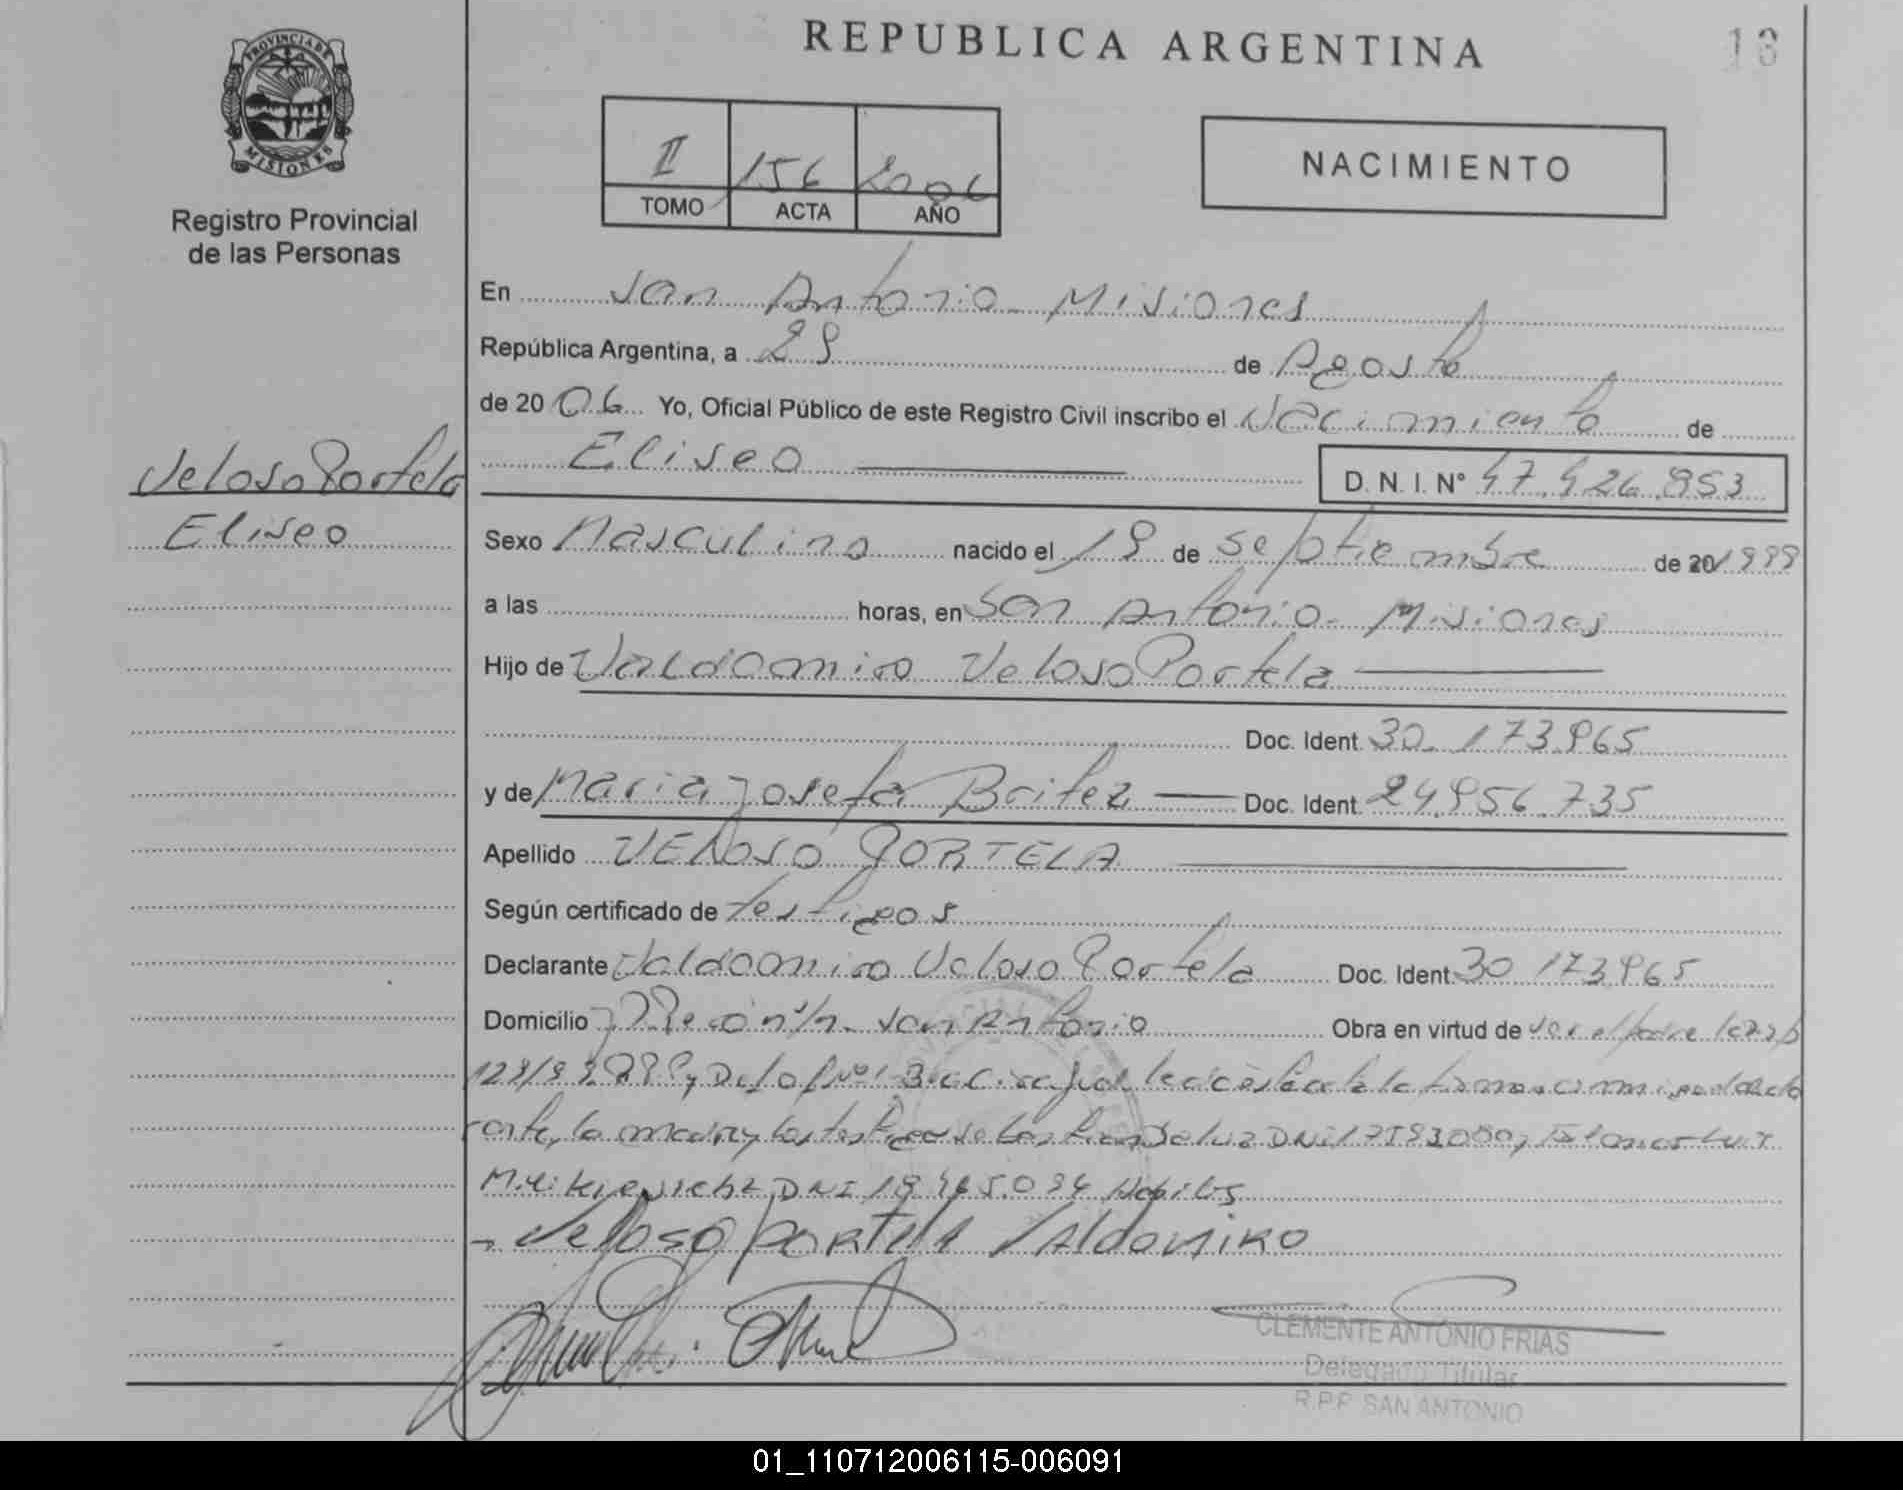 REPUBLICA ARGENTINA
PROVINCIA DE
MISIONES
Registro Provincial
de las Personas
II 156 2006
TOMO ACTA AÑO
NACIMIENTO
En San Antonio - Misiones
República Argentina, a 29 de Agosto
de 2006 Yo, Oficial Público de este Registro Civil inscribo el Nacimiento de
Veloso Portela
Eliseo
Eliseo
D.N.I. N°
Sexo Masculino nacido el 19 de Septiembre de 20 1999
a las horas, en San Antonio - Misiones
Hijo de Valdomiro Veloso Portela
Doc. Ident. 30.173.965
y de Maria Josefa Britez Doc. Ident. 24.956.735
Apellido VELOSO PORTELA
Según certificado de testigos
Declarante Valdomiro Veloso Portela Doc. Ident. 30 173965
Domicilio San Antonio Obra en virtud de ser el padre
la madre y los testigos DNI
DNI
Veloso PORTELA VAldomiRO
CLEMENTE ANTONIO FRIAS
Delegado Titular
R.P.P. SAN ANTONIO
01_110712006115-006091